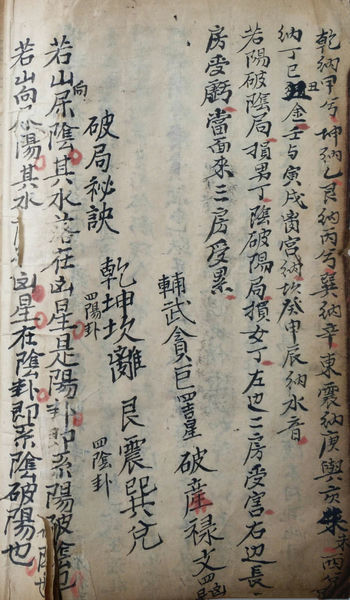 乾納甲兮坤納乙艮納丙兮巽納辛東震納庚與亥未西
納丁巳丑金壬与寅戌當宮納坎癸申辰納水音
若陽破陰局損男丁陰破陽局損女丁左边三房受害右边長
房受虧當面來二房受累
輔武貪巨四吉星破產祿文四凶
破局秘訣
乾坤坎離四陽卦艮震巽兌四陰卦
若山向屬陰其水落在凶星是陽卦即系陽破陰也
若山向属陽其水凶星在陰卦即系陰破陽也